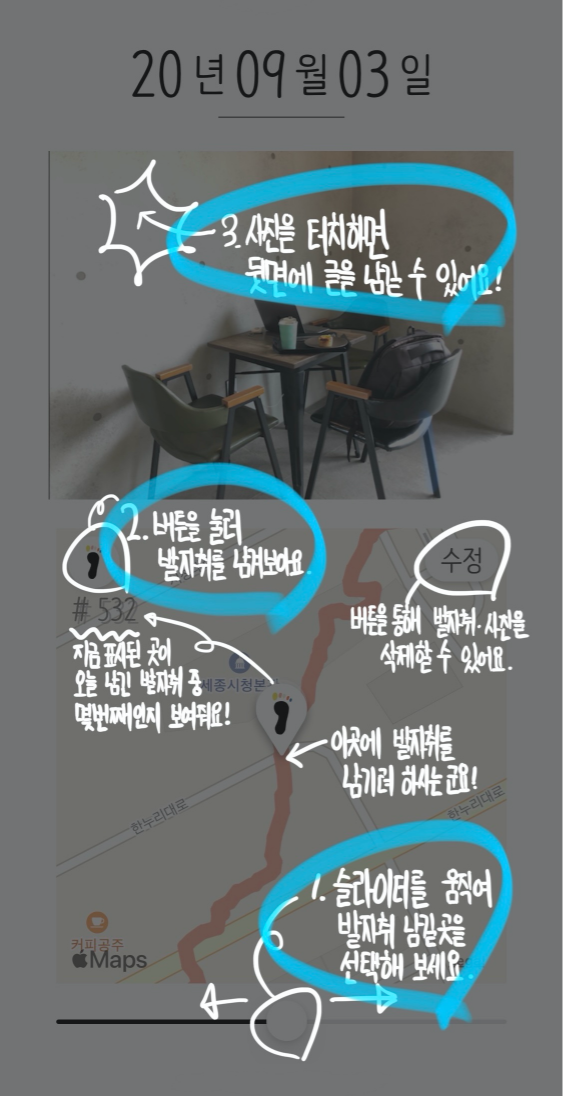 20년 09월 03일
3. 사진을 터치하면
뒷면에 글을 남길 수 있어요!
2. 버튼을 눌러
발자취를 남겨보아요.
수정
# 532
버튼을 통해 발자취·사진을
삭제할 수 있어요.
지금 표시된 곳이
오늘 남긴 발자취 중
몇번째인지 보여줘요!
세종시청본
이곳에 발자취를
남기려 하시는 군요!
한누리대로
한누리대로
1. 슬라이더를 움직여
발자취 남길 곳을
선택해 보세요.
커피공주
Maps